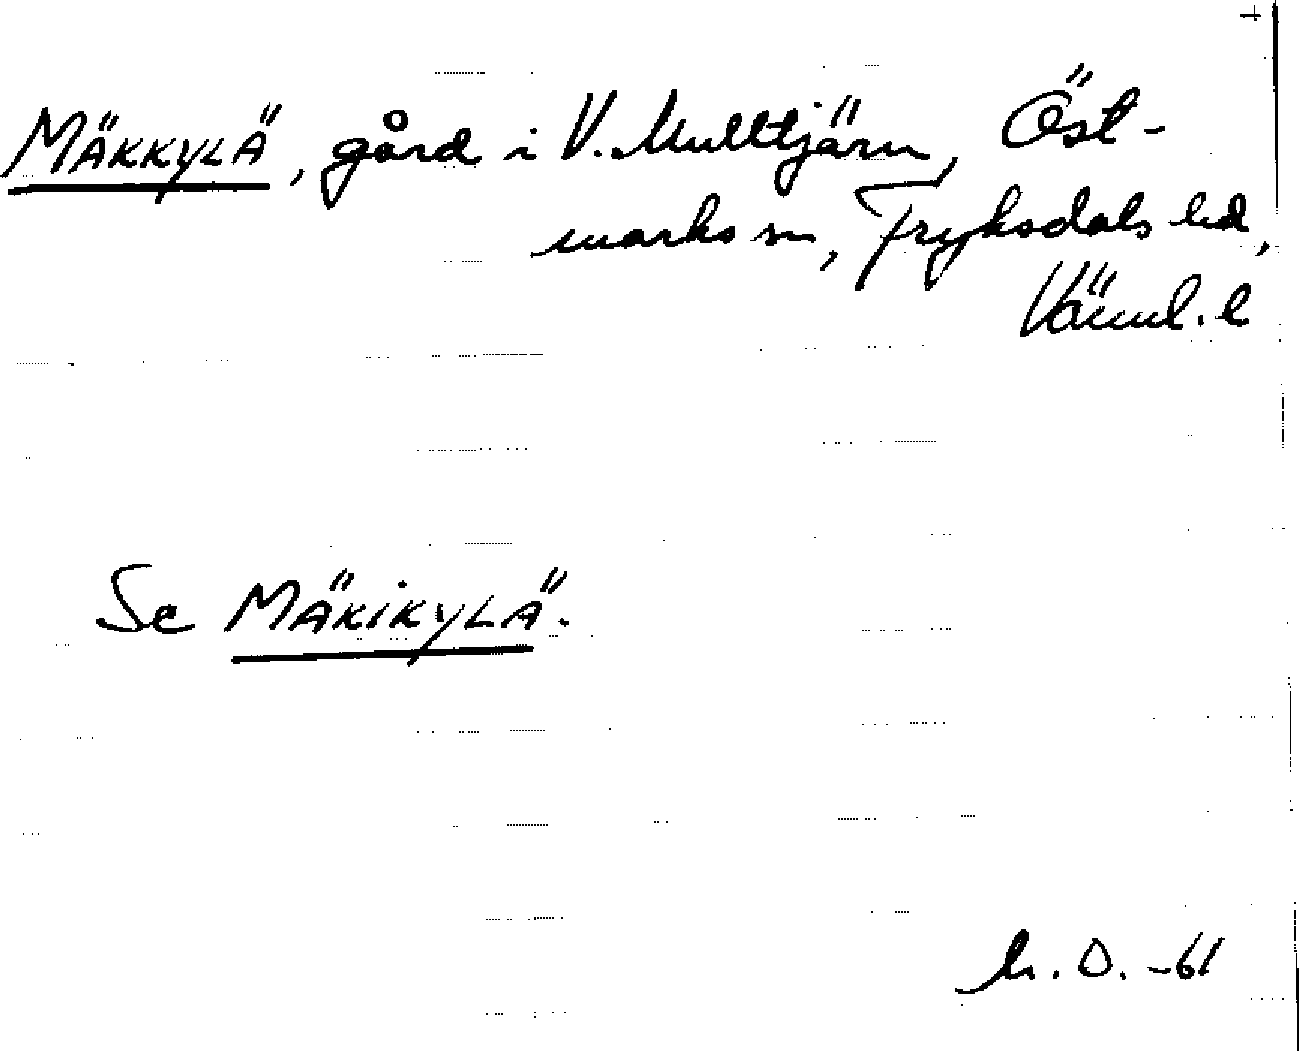 MÄKKYLÄ, gård i V. Mulltjärn, Öst-
marks sn, Fryksdals hd,
Värml. l
Se MÄKIKYLÄ.
O. -61